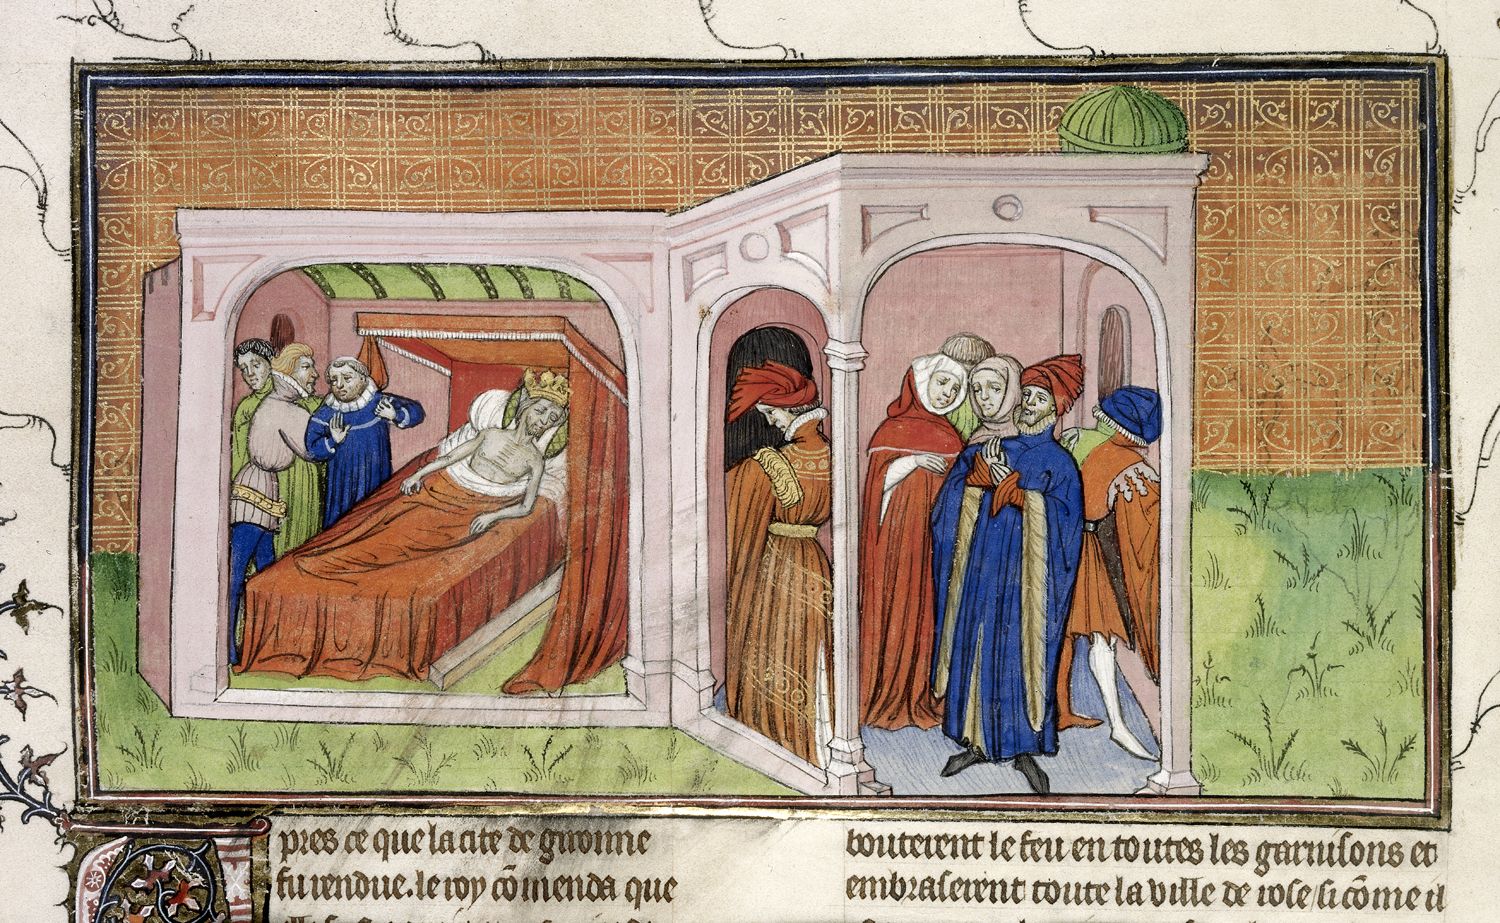 pres ce que la cite de gironne
fu rendue. le roy cõmenda que
bouterent le feu en toutes les garnisons et
embraserent toute la ville de rose si cõme il